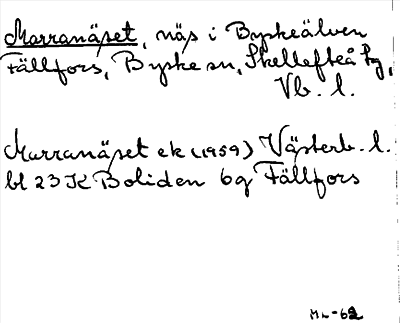 Marranäset, näs i Byskeälven
Fällfors, Byske sn, Skellefteå tg,
Vb. l.
Marranäset ek (1959) Västerb. l.
bl 23 K Boliden 6g Fällfors